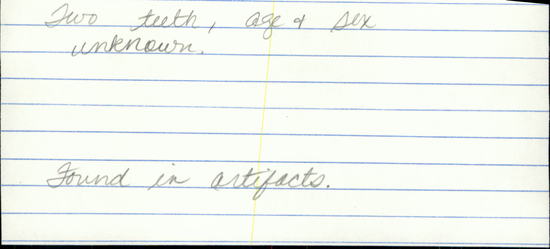 Two teeth, age & sex
unknown.
Found in artifacts.